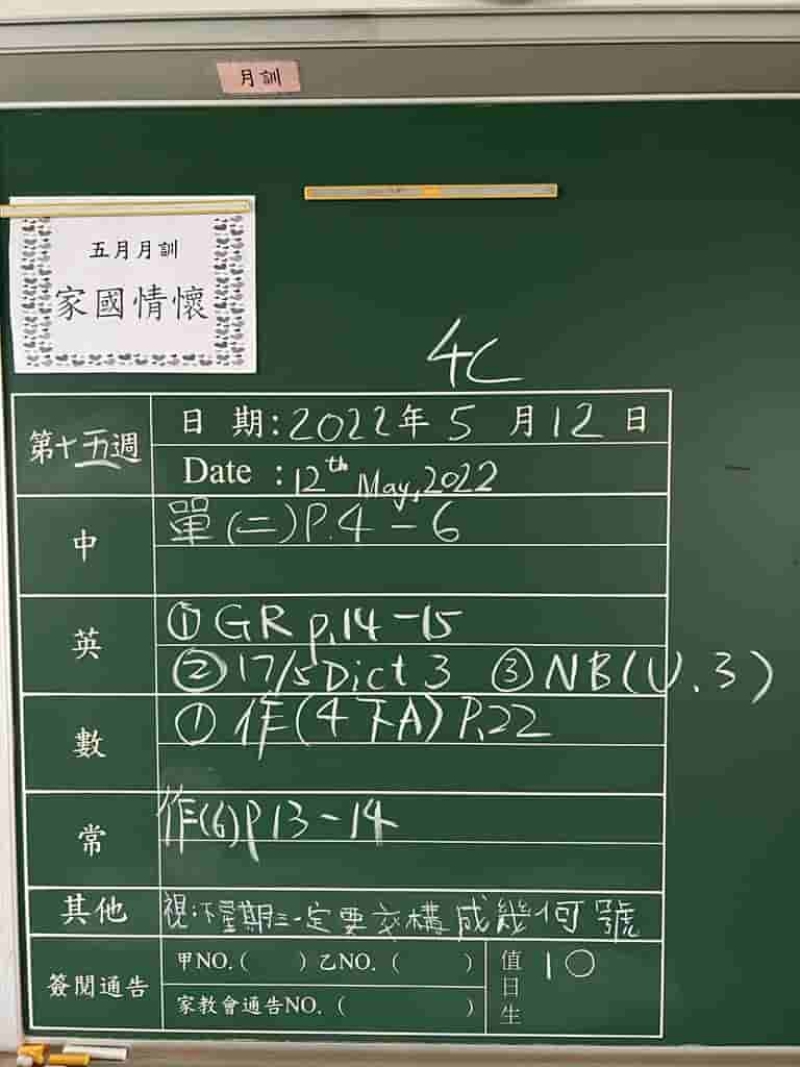 月訓
五月月訓
家國情懷
4C
第十五週
日 期:2022年 5 月 12 日
Date : 12th May, 2022
中
單(二)P.4-6
英
① GR p.14-15
② 17/5 Dict 3 ③ NB(U.3)
數
① 作(4下A) P.22
常
作(6)P13-14
其他
視:下星期三一定要交構成幾何號
簽閱通告
甲NO.( ) 乙NO. ( )
家教會通告NO. ( )
值日生
10